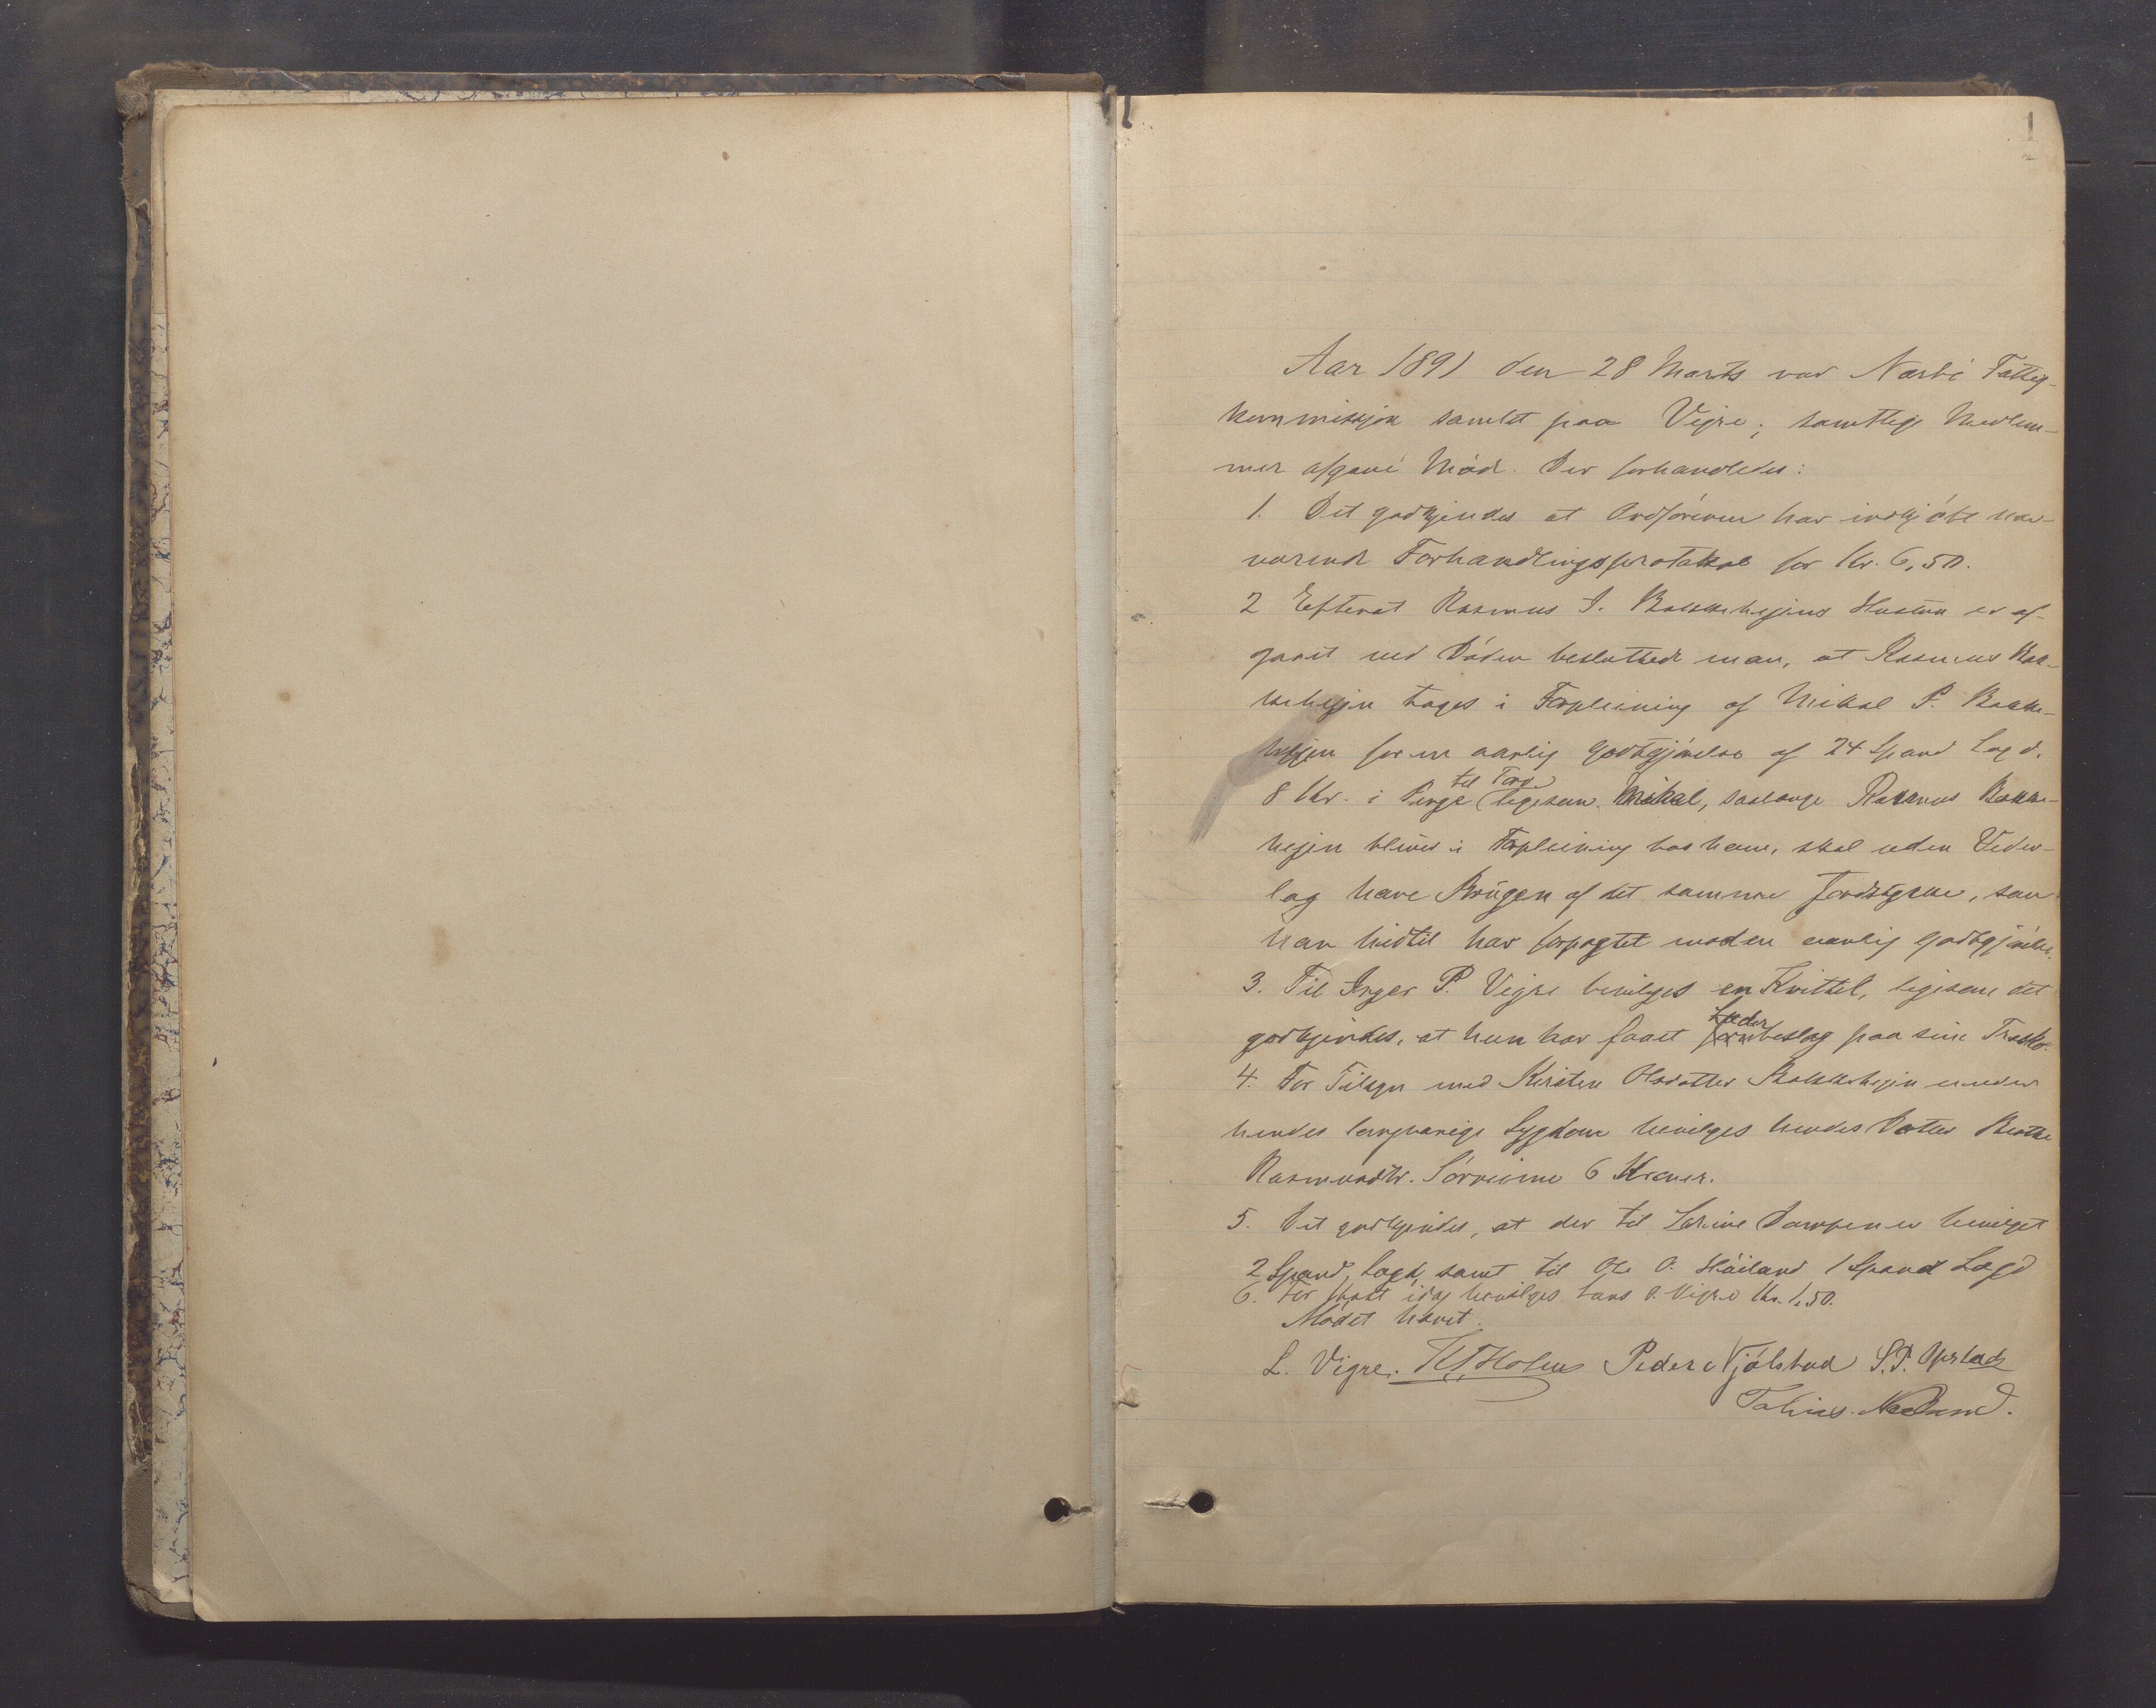 1
Aar 1891 den 28 Marts var Nærbø Fattig-
kommissjon samlet paa Vigre; samtlige Medlem-
mer afgave Mød. Der forhandledes:
1. Det godkjendes at Ordføreren har indkjøbt nær-
værende Forhandlingsprotokol for Kr. 6,50.
2 Efterat Rasmus J. Bakkehejens Hustru er af-
gaaet ved Døden besluttede man, at Rasmus Bak-
kehejen tages i Forpleining af Mikal P. Bakke-
hejen for en aarlig Godtgjørelse af 24 Spand Lægd.
8 Kr. i Penge til Torv ligesom Mikal, saalænge Rasmus Bakke-
hejen bliver i Forpleining hos ham, skal uden Veder-
lag have Brugen af det samme Jordstykke, som
han hidtil har forpagtet mod en aarlig Godtgjørelse.
3. Til Inger P. Vigre bevilges en Kvittel, ligesom det
godkjendes, at hun har faaet Læderbeslag paa sine Træsko.
4. For Tilsyn med Kirsten Olsdatter Bakkehejen under
hendes langvarige Sygdom bevilges hendes Datter Berthe
Rasmusdtr. Sørreime 6 Kroner.
5. Det godkjendes, at der til Serine Dampen er bevilget
2 Spand Lægd samt til Ole O. Høiland 1 Spand Lægd
6. For idag bevilges Lars O. Vigre Kr. 1,50.
Mødet hævet.
L. Vigre. Peder Njølstad S. P. Opstad
Tobias Nedland.